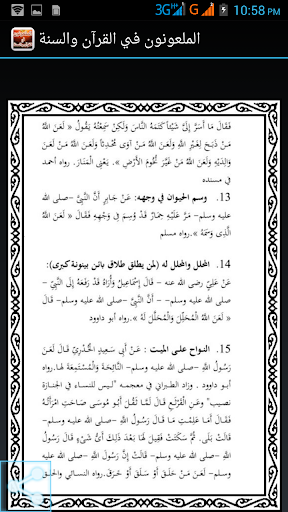 3G G 10:58 PM
الملعونون في القرآن والسنة
فَقَالَ مَا أَسَرَّ إِلَيَّ شَيْئًا كَتَمَهُ النَّاسَ وَلَكِنْ سَمِعْتُهُ يَقُولُ « لَعَنَ اللَّهُ
مَنْ ذَبَحَ لِغَيْرِ اللَّهِ وَلَعَنَ اللَّهُ مَنْ آوَى مُحْدِثًا وَلَعَنَ اللَّهُ مَنْ لَعَنَ
وَالِدَيْهِ وَلَعَنَ اللَّهُ مَنْ غَيَّرَ تُخُومَ الأَرْضِ ». يَعْنِى الْمَنَارَ. رواه أحمد
في مسنده
13. وسم الحيوان في وجهه: عَنْ جَابِرٍ أَنَّ النَّبِيَّ –صلى الله
عليه وسلم– مَرَّ عَلَيْهِ حِمَارٌ قَدْ وُسِمَ فِي وَجْهِهِ فَقَالَ « لَعَنَ
اللَّهُ الَّذِى وَسَمَهُ ».رواه مسلم
14. المحلل والمحلل له (لمن يطلق طلاق بائن بينونة كبرى):
عَنْ عَلِيٍّ رضى الله عنه – قَالَ إِسْمَاعِيلُ وَأُرَاهُ قَدْ رَفَعَهُ إِلَى النَّبِيِّ –
صلى الله عليه وسلم– أَنَّ النَّبِيَّ –صلى الله عليه وسلم– قَالَ « لَعَنَ
اللَّهُ الْمُحَلِّلَ وَالْمُحَلَّلَ لَهُ ».رواه أبو داوود
15. النواح على الميت : عَنْ أَبِي سَعِيدٍ الْخُدْرِيِّ قَالَ لَعَنَ
رَسُولُ اللَّهِ –صلى الله عليه وسلم– النَّائِحَةَ وَالْمُسْتَمِعَةَ لها.رواه
أبو داوود . وزاد الطبراني في معجمه" ليس للنساء في الجنازة
نصيب" وعَنِ الْقَرْثَعِ قَالَ لَمَّا ثَقُلَ أَبُو مُوسَى صَاحَتِ امْرَأَتُهُ
فَقَالَ أَمَا عَلِمْتِ مَا قَالَ رَسُولُ اللَّهِ –صلى الله عليه وسلم– قَالَتْ
بَلَى. ثُمَّ سَكَتَتْ فَقِيلَ لَهَا بَعْدَ ذَلِكَ أَيُّ شَىْءٍ قَالَ رَسُولُ اللَّهِ –
صلى الله عليه وسلم– قَالَتْ إِنَّ رَسُولَ اللَّهِ –صلى الله عليه
وسلم– لَعَنَ مَنْ حَلَقَ أَوْ سَلَقَ أَوْ خَرَقَ.رواه النسائي والحلق